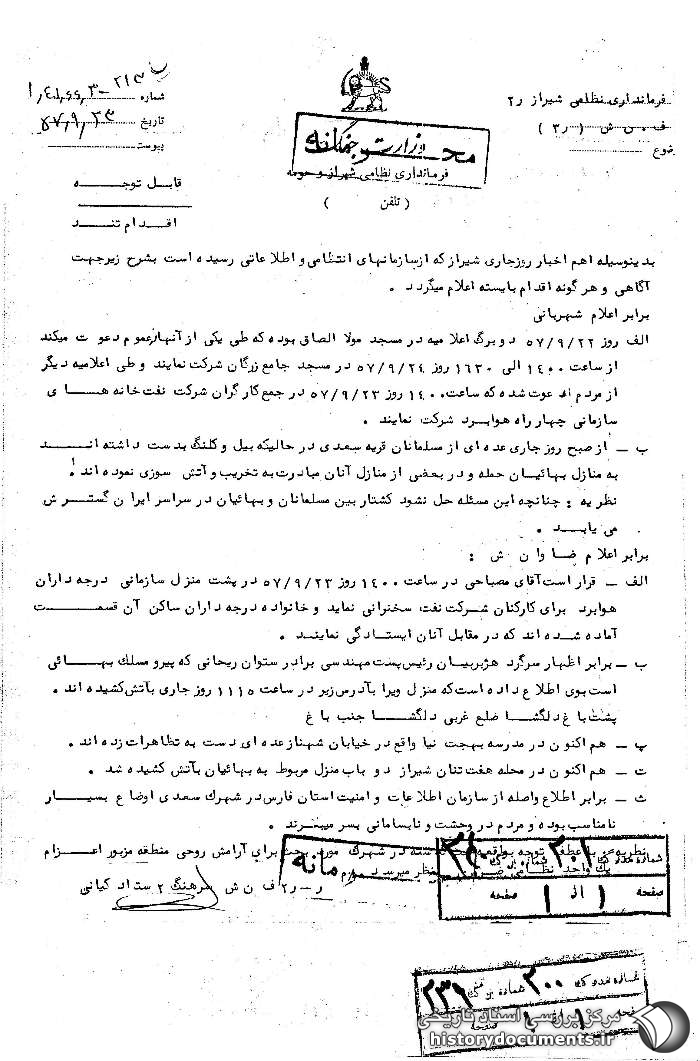 فرمانداری نظامی شیراز ر۲
ف ن ش (ر۳)
ضوع
وزارت جنگ
محرمانه
فرمانداری نظامی شهر شیراز و حومه
( تلفن )
شماره
تاریخ ۵۷٫۹٫۲۳
پیوست
قابل توجه
اقدام تند
بدینوسیله اهم اخبار روز جاری شیراز که از سازمانهای انتظامی و اطلاعاتی رسیده است بشرح زیر جهت
آگاهی و هر گونه اقدام بایسته اعلام میگردد .
برابر اعلام شهربانی
الف روز ۵۷/۹/۲۲ دو برگ اعلامیه در مسجد مولا الصاق بوده که طی یکی از آنها از عموم دعوت میکند
از ساعت ۱۴۰۰ الی ۱۶۳۰ روز ۵۷/۹/۲۴ در مسجد جامع زرگان شرکت نمایند و طی اعلامیه دیگر
از مردم دعوت شده که ساعت ۱۴۰۰ روز ۵۷/۹/۲۳ در جمع کارگران شرکت نفت خانه های
سازمانی چهار راه هوابرد شرکت نمایند .
ب ـ از صبح روز جاری عده ای از مسلمانان قریه سعدی در حالیکه بیل و کلنگ بدست داشته اند
به منازل بهائیان حمله و در بعضی از منازل آنان مبادرت به تخریب و آتش سوزی نموده اند !
نظریه : چنانچه این مسئله حل نشود کشتار بین مسلمانان و بهائیان در سراسر ایران گسترش
می یابد .
برابر اعلام ضا وان ش :
الف ـ قرار است آقای مصباحی در ساعت ۱۴۰۰ روز ۵۷/۹/۲۳ در پشت منزل سازمانی درجه داران
هوابرد برای کارکنان شرکت نفت سخنرانی نماید و خانواده درجه داران ساکن آن قسمت
آماده شده اند که در مقابل آنان ایستادگی نمایند .
ب ـ برابر اظهار سرگرد هژبریان رئیس پست مهندسی برادر ستوان ریحانی که پیرو مسلک بهائی
است بوی اطلاع داده است که منزل ویرا بآدرس زیر در ساعت ۱۱۱۵ روز جاری بآتش کشیده اند .
پشت باغ دلگشا ضلع غربی دلگشا جنب باغ
پ ـ هم اکنون در مدرسه بهجت نیا واقع در خیابان شهناز عده ای دست به تظاهرات زده اند .
ت ـ هم اکنون در محله هفت تنان شیراز دو باب منزل مربوط به بهائیان بآتش کشیده شد .
ث ـ برابر اطلاع واصله از سازمان اطلاعات و امنیت استان فارس در شهرک سعدی اوضاع بسیار
نامناسب بوده و مردم در وحشت و نابسامانی بسر میبرند .
نظریه : توجه شهرک مورد بحث برای آرامش روحی منطقه مزبور اعزام
یک واحد نظامی نظر میرسد
ر ـ ر۲ ف ن ش سرهنگ ۲ ستاد کیانی
محرمانه
شماره محدوده ۳۰۱
صفحه ۱ الی ۱ صفحه
شماره محدوده ۳۰۰ ۳۳۹
صفحه
مرکز بررسی اسناد تاریخی
historydocuments.ir